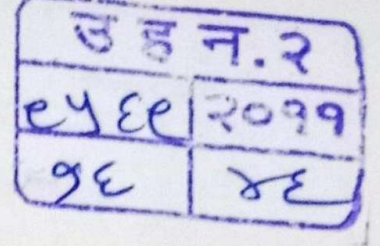 उ ह न. २
९५६९ २०११
१६ ४६